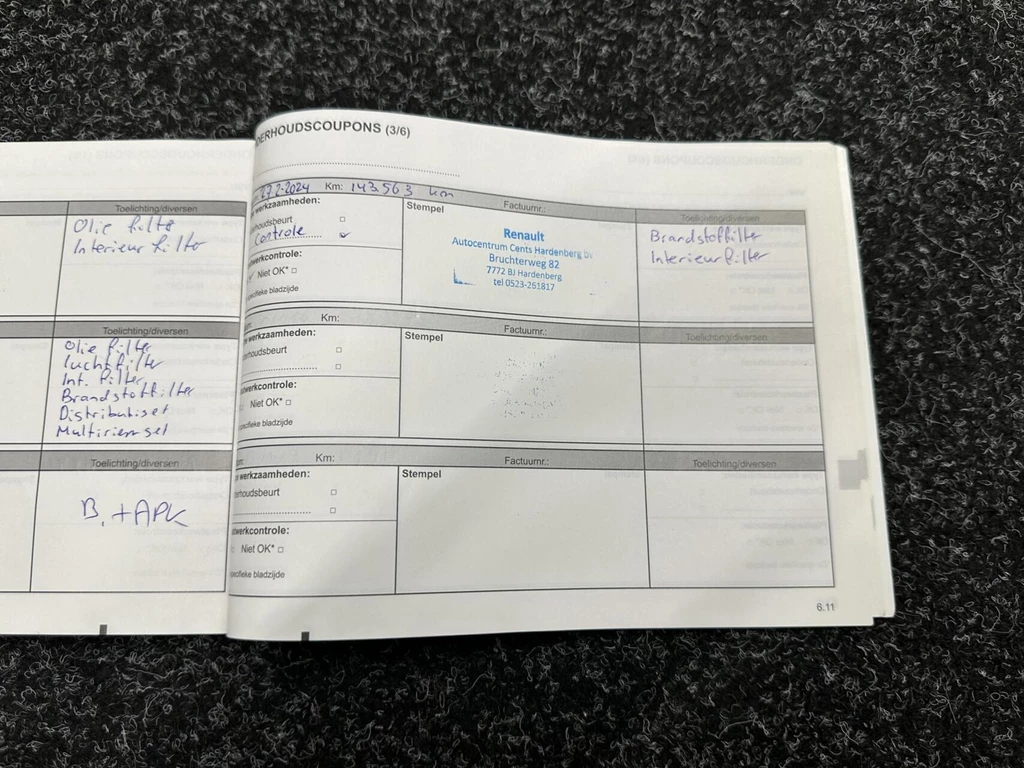 Toelichting/diversen
Olie filter
Interieur filter
Toelichting/diversen
Olie filter
Luchtfilter
Int. filter
Brandstoffilter
Distributieset
Multiriemset
Toelichting/diversen
B. + APK
DERHOUDSCOUPONS (3/6)
27-2-2024 Km: 143563 km
werkzaamheden:
erhoudsbeurt
Controle
twerkcontrole:
Niet OK*
specifieke bladzijde
Stempel
Factuurnr.:
Renault
Autocentrum Cents Hardenberg bv
Bruchterweg 82
7772 BJ Hardenberg
tel 0523-261817
Toelichting/diversen
Brandstoffilter
Interieurfilter
Km:
werkzaamheden:
erhoudsbeurt
twerkcontrole:
Niet OK*
specifieke bladzijde
Stempel
Factuurnr.:
Toelichting/diversen
Km:
werkzaamheden:
erhoudsbeurt
twerkcontrole:
Niet OK*
specifieke bladzijde
Stempel
Factuurnr.:
Toelichting/diversen
6.11